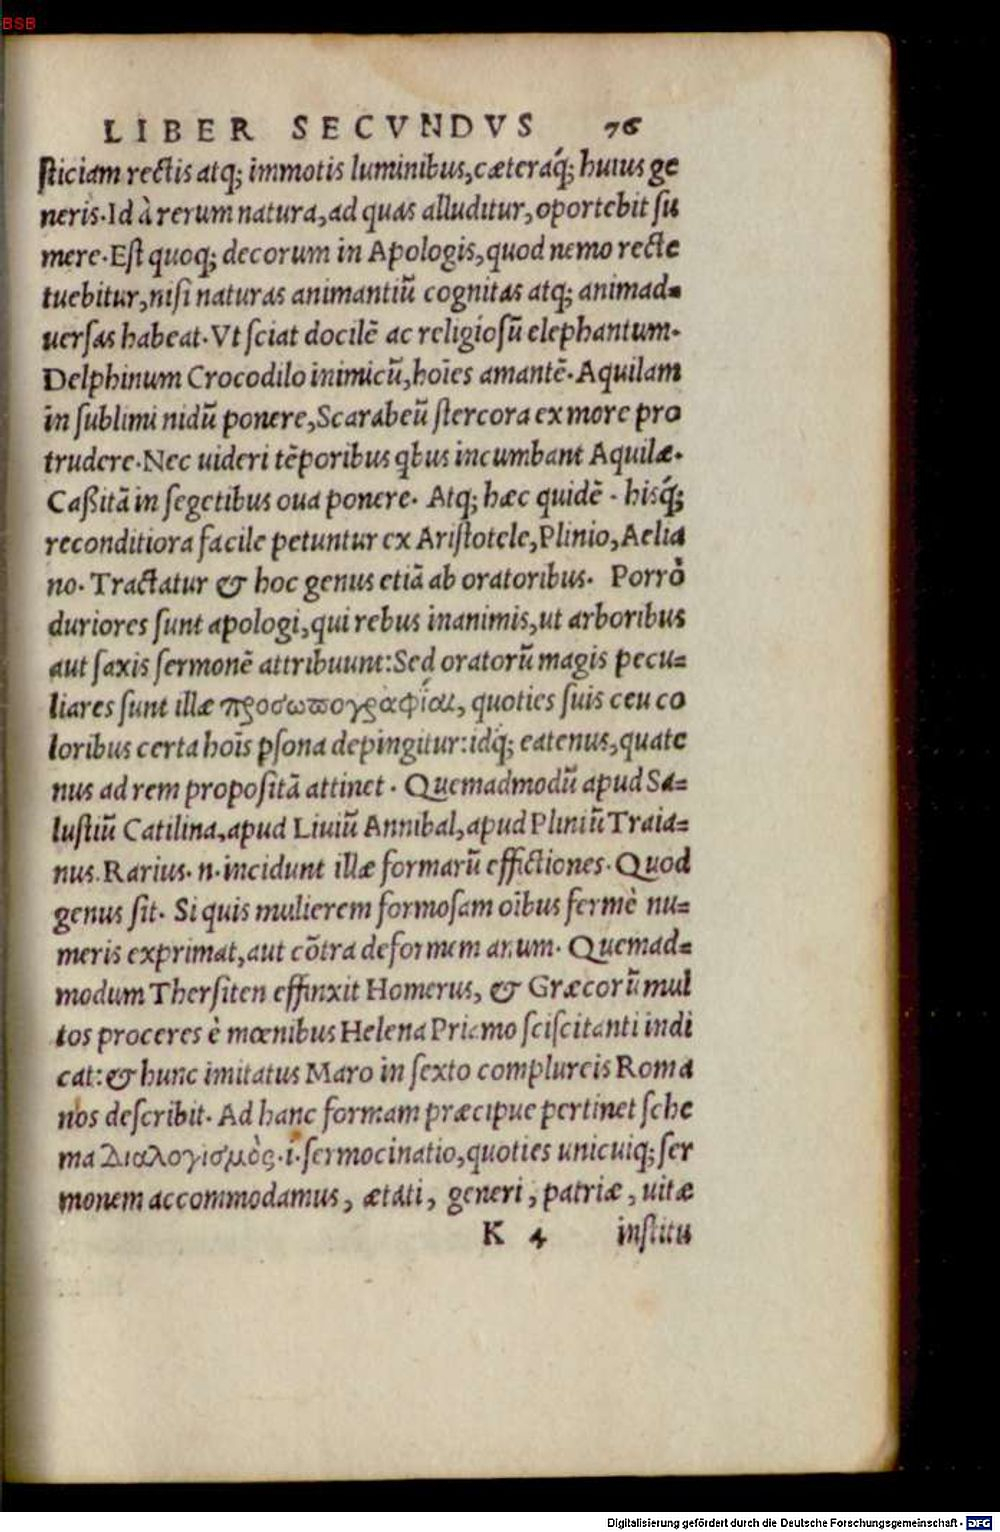 BSB
LIBER SECVNDVS 76
ſticiam rectis atq; immotis luminibus,cæteraq́; huius ge
neris.Id à rerum natura,ad quas alluditur,oportebit ſu
mere.Eſt quoq; decorum in Apologis,quod nemo recte
tuebitur,niſi naturas animantiū cognitas atq; animad=
uerſas habeat.Vt ſciat docilē ac religioſū elephantum.
Delphinum Crocodilo inimicū,hoīes amantē.Aquilam
in ſublimi nidū ponere,Scarabeū ſtercora ex more pro
trudere.Nec uideri tēporibus qbus incumbant Aquilæ.
Caßitā in ſegetibus oua ponere. Atq; hæc quidē . hisq́;
reconditiora facile petuntur ex Ariſtotele,Plinio,Aelia
no. Tractatur & hoc genus etiā ab oratoribus. Porrò
duriores ſunt apologi,qui rebus inanimis,ut arboribus
aut ſaxis ſermonē attribuunt:Sed oratorū magis pecu=
liares ſunt illæ προσωπογραφίαι, quoties ſuis ceu co
loribus certa hoīs pſona depingitur:idq́; eatenus,quate
nus ad rem propoſitā attinet . Quemadmodū apud Sa=
luſtiū Catilina,apud Liuiū Annibal,apud Pliniū Traia=
nus.Rarius.n.incidunt illæ formarū effictiones.Quod
genus ſit. Si quis mulierem formoſam oībus fermè nu=
meris exprimat,aut cōtra deformem anum. Quemad=
modum Therſiten effinxit Homerus, & Græcorū mul
tos proceres è mœnibus Helena Priamo ſciſcitanti indi
cat:& hunc imitatus Maro in ſexto complureis Roma
nos deſcribit. Ad hanc formam præcipue pertinet ſche
ma Διαλογισμὸς.i.ſermocinatio,quoties unicuiq; ſer
monem accommodamus, ætati, generi, patriæ, uitæ
K 4 inſtitu
Digitalisierung gefördert durch die Deutsche Forschungsgemeinschaft - DFG